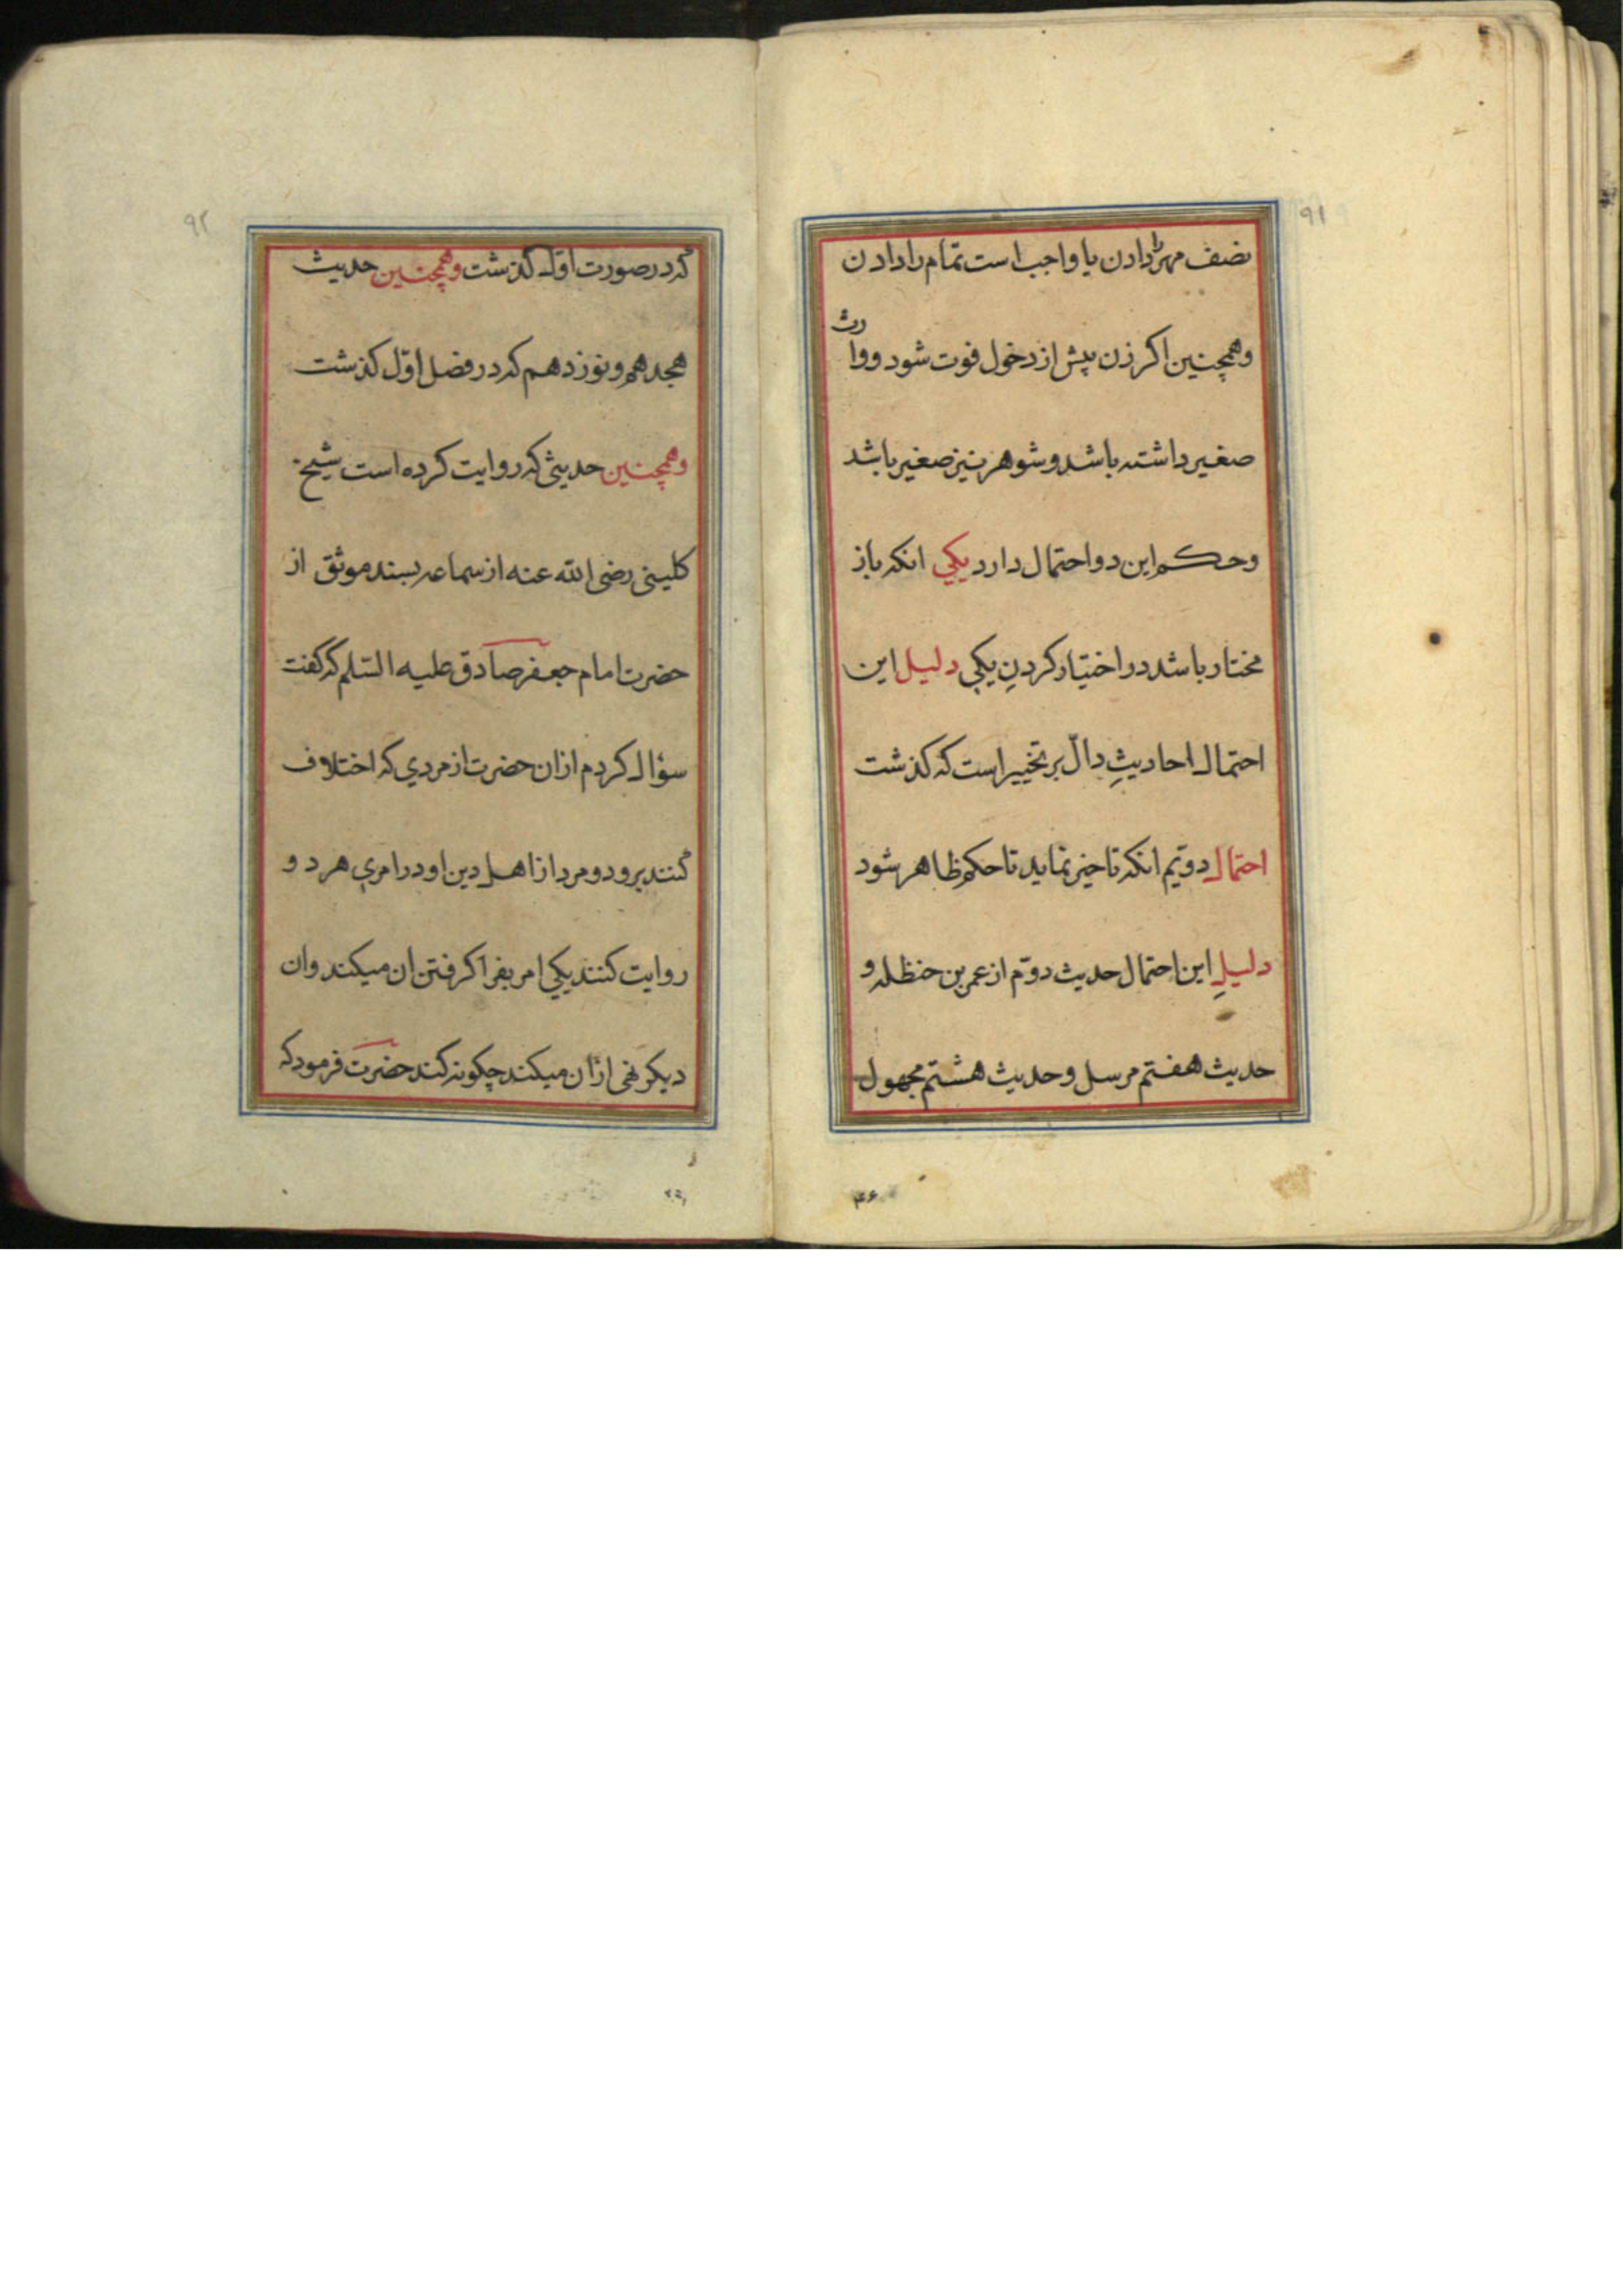 ۹۱
نصف مهر را دادن یا واجب است تمام را دادن
وهمچنین اکر زن پیش از دخول فوت شود ووارث
صغیر داشته باشد وشوهر نیز صغیر باشد
وحکم این دو احتمال دارد یکي انکه باز
مختار باشد در اختیار کردنِ یکي دلیل این
احتمال احادیثِ دالّ بر تخییر است که کذشت
احتمال دویّم انکه تاخیر نماید تا حکم ظاهر شود
دلیلِ این احتمال حدیث دوّم از عمر بن حنظله و
حدیث هفتم مرسل وحدیث هشتم مجهول
۴۶
۹۲
که در صورت اوّل کذشت وهمچنین حدیث
هجدهم ونوزدهم که در فصل اوّل کذشت
وهمچنین حدیثی که روایت کرده است شیخ
کلینی رضی الله عنه از سماعه بسند موثق از
حضرت امام جعفر صادق علیه السّلم که کفت
سؤال کردم از ان حضرت از مردي که اختلاف
کنند برو دو مرد از اهل دین او در امرې هر دو
روایت کنند یکي امر بفرا کرفتن ان میکند وان
دیکر نهی از ان میکند چکونه کند حضرت فرمود که